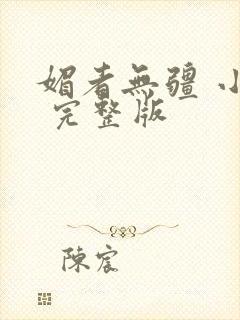 媚者無疆 小
完整版
陳宸